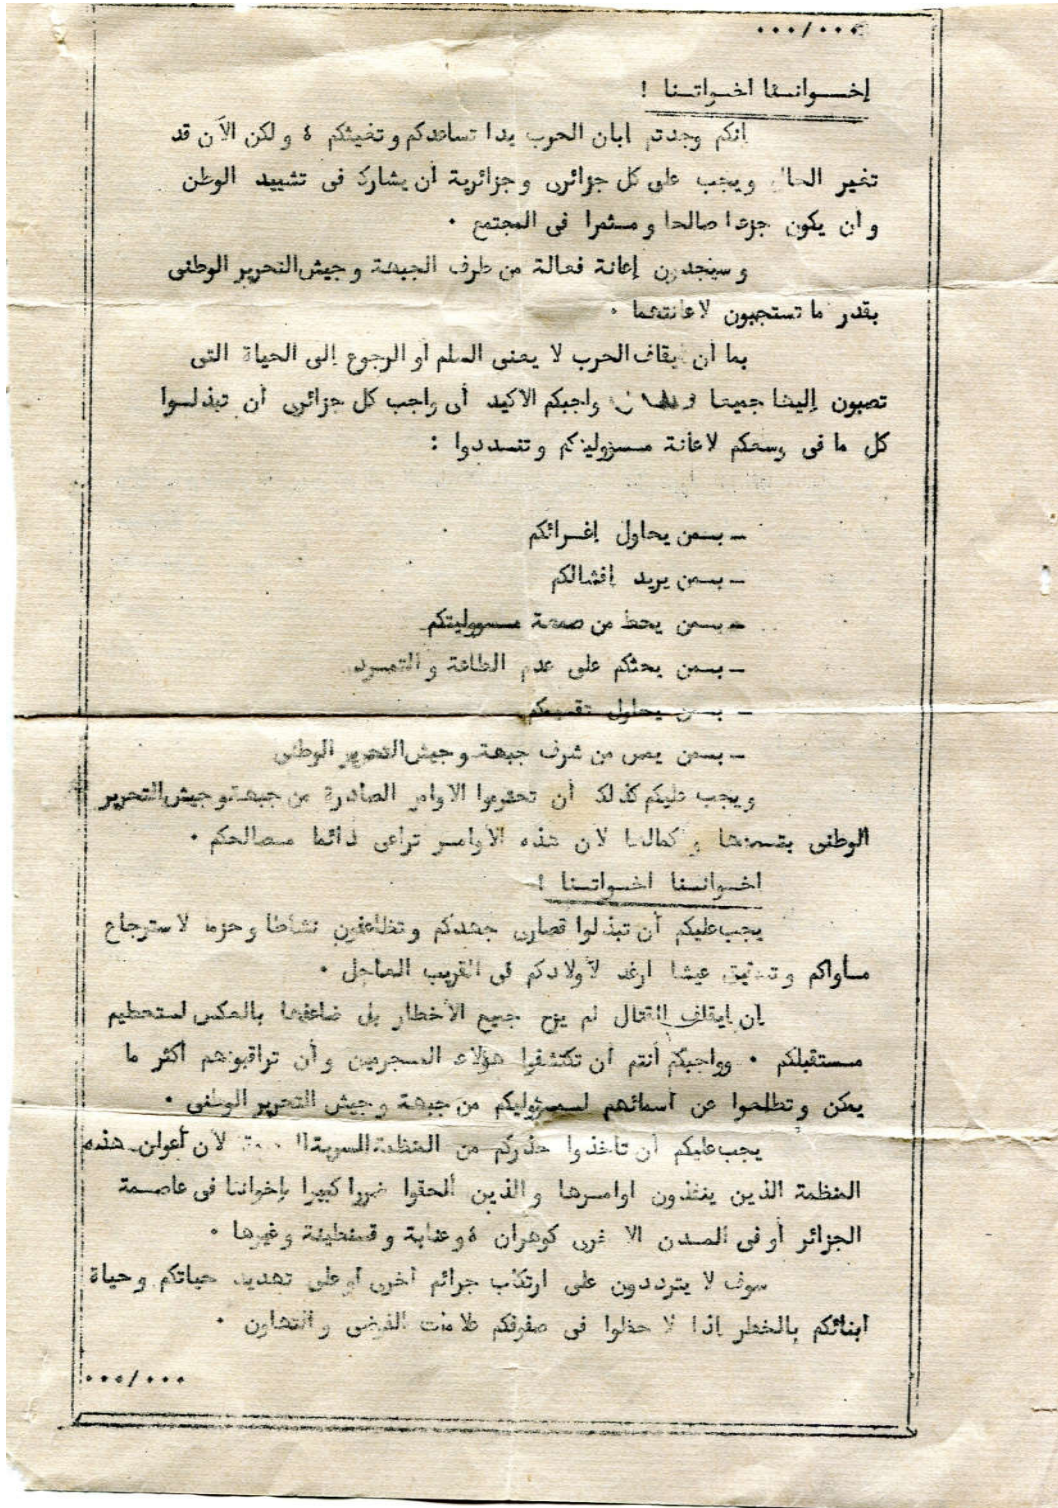 .../...
إخـــوانـنا أخـواتـنا !
إنكم وجدتم إبان الحرب يدا تساعدكم و تغيثكم ٤ و لكن الآن قد
تغير الحال و يجب على كل جزائرى و جزائرية أن يشارك فى تشييد الوطن
و أن يكون جزءا صالحا و مـثمرا فى المجتمع .
و ستجدون إعانة فعالة من طرف الجبهة و جيش التحرير الوطنى
بقدر ما تستجبون لاعانتهما .
بما أن إيقاف الحرب لا يعنى السلم أو الرجوع إلى الحياة التى
تصبون إليها جميعا واجبكم الاكيد أى واجب كل جزائرى أن تبذلـوا
كل ما فى وسعكم لاعانة مسـؤوليكم و تنـددوا :
- بـمن يحاول إغـرائكم
- بـمن يريد إفشالكم
- بـمن يحط من سمعة مسـووليتكم
- بـمن يحثكم على عدم الطاعة و التمـرد
- بـمن يحاول تقسيمكم
- بـمن يمس من شرف جبهـة و جيش التحرير الوطنى
و يجب عليكم كذلك أن تحترموا الاوامر الصادرة من جبهة و جيش التحرير
الوطنى و كمالها لان هذه الأوامـر تراعى دائما مـصالحكم .
اخـوانـنا اخـواتـنا !
يجب عليكم أن تبذلوا قصارى جهدكم و تظاعفون نشاطا و حزما لاسترجاع
مـأواكم و عيشا ارغد لأولادكم فى القريب العاجل .
إن إيقاف القتال لم يزح جميع الأخطار بل ضاعفها بالعكس لـتحطيم
مـستقبلكم . وواجبكم أنتم أن تكتشفوا هؤلاء المـجرمين و أن تراقبوهم أكثر ما
يمكن و تطلعوا عن أسمائهم لمـسؤوليكم من جبهة و جيش التحرير الوطنى .
يجب عليكم أن تأخذوا حذركم من المنظمة السرية لأن أعوان هذه
المنظمة الذين ينفذون اوامـرها و الذين ألحقوا ضررا كبيرا بإخواننا فى عاصـمة
الجزائر أو فى المـدن الاخرى كوهران ٤ و عنابة و قسنطينة و غيرها .
سوف لا يترددون على ارتكاب جرائم أخرى أو على تهديد حياتكم و حياة
أبنائكم بالخطر إذا لاحظوا فى صفوفكم علامات الفوضى و التهاون .
.../...